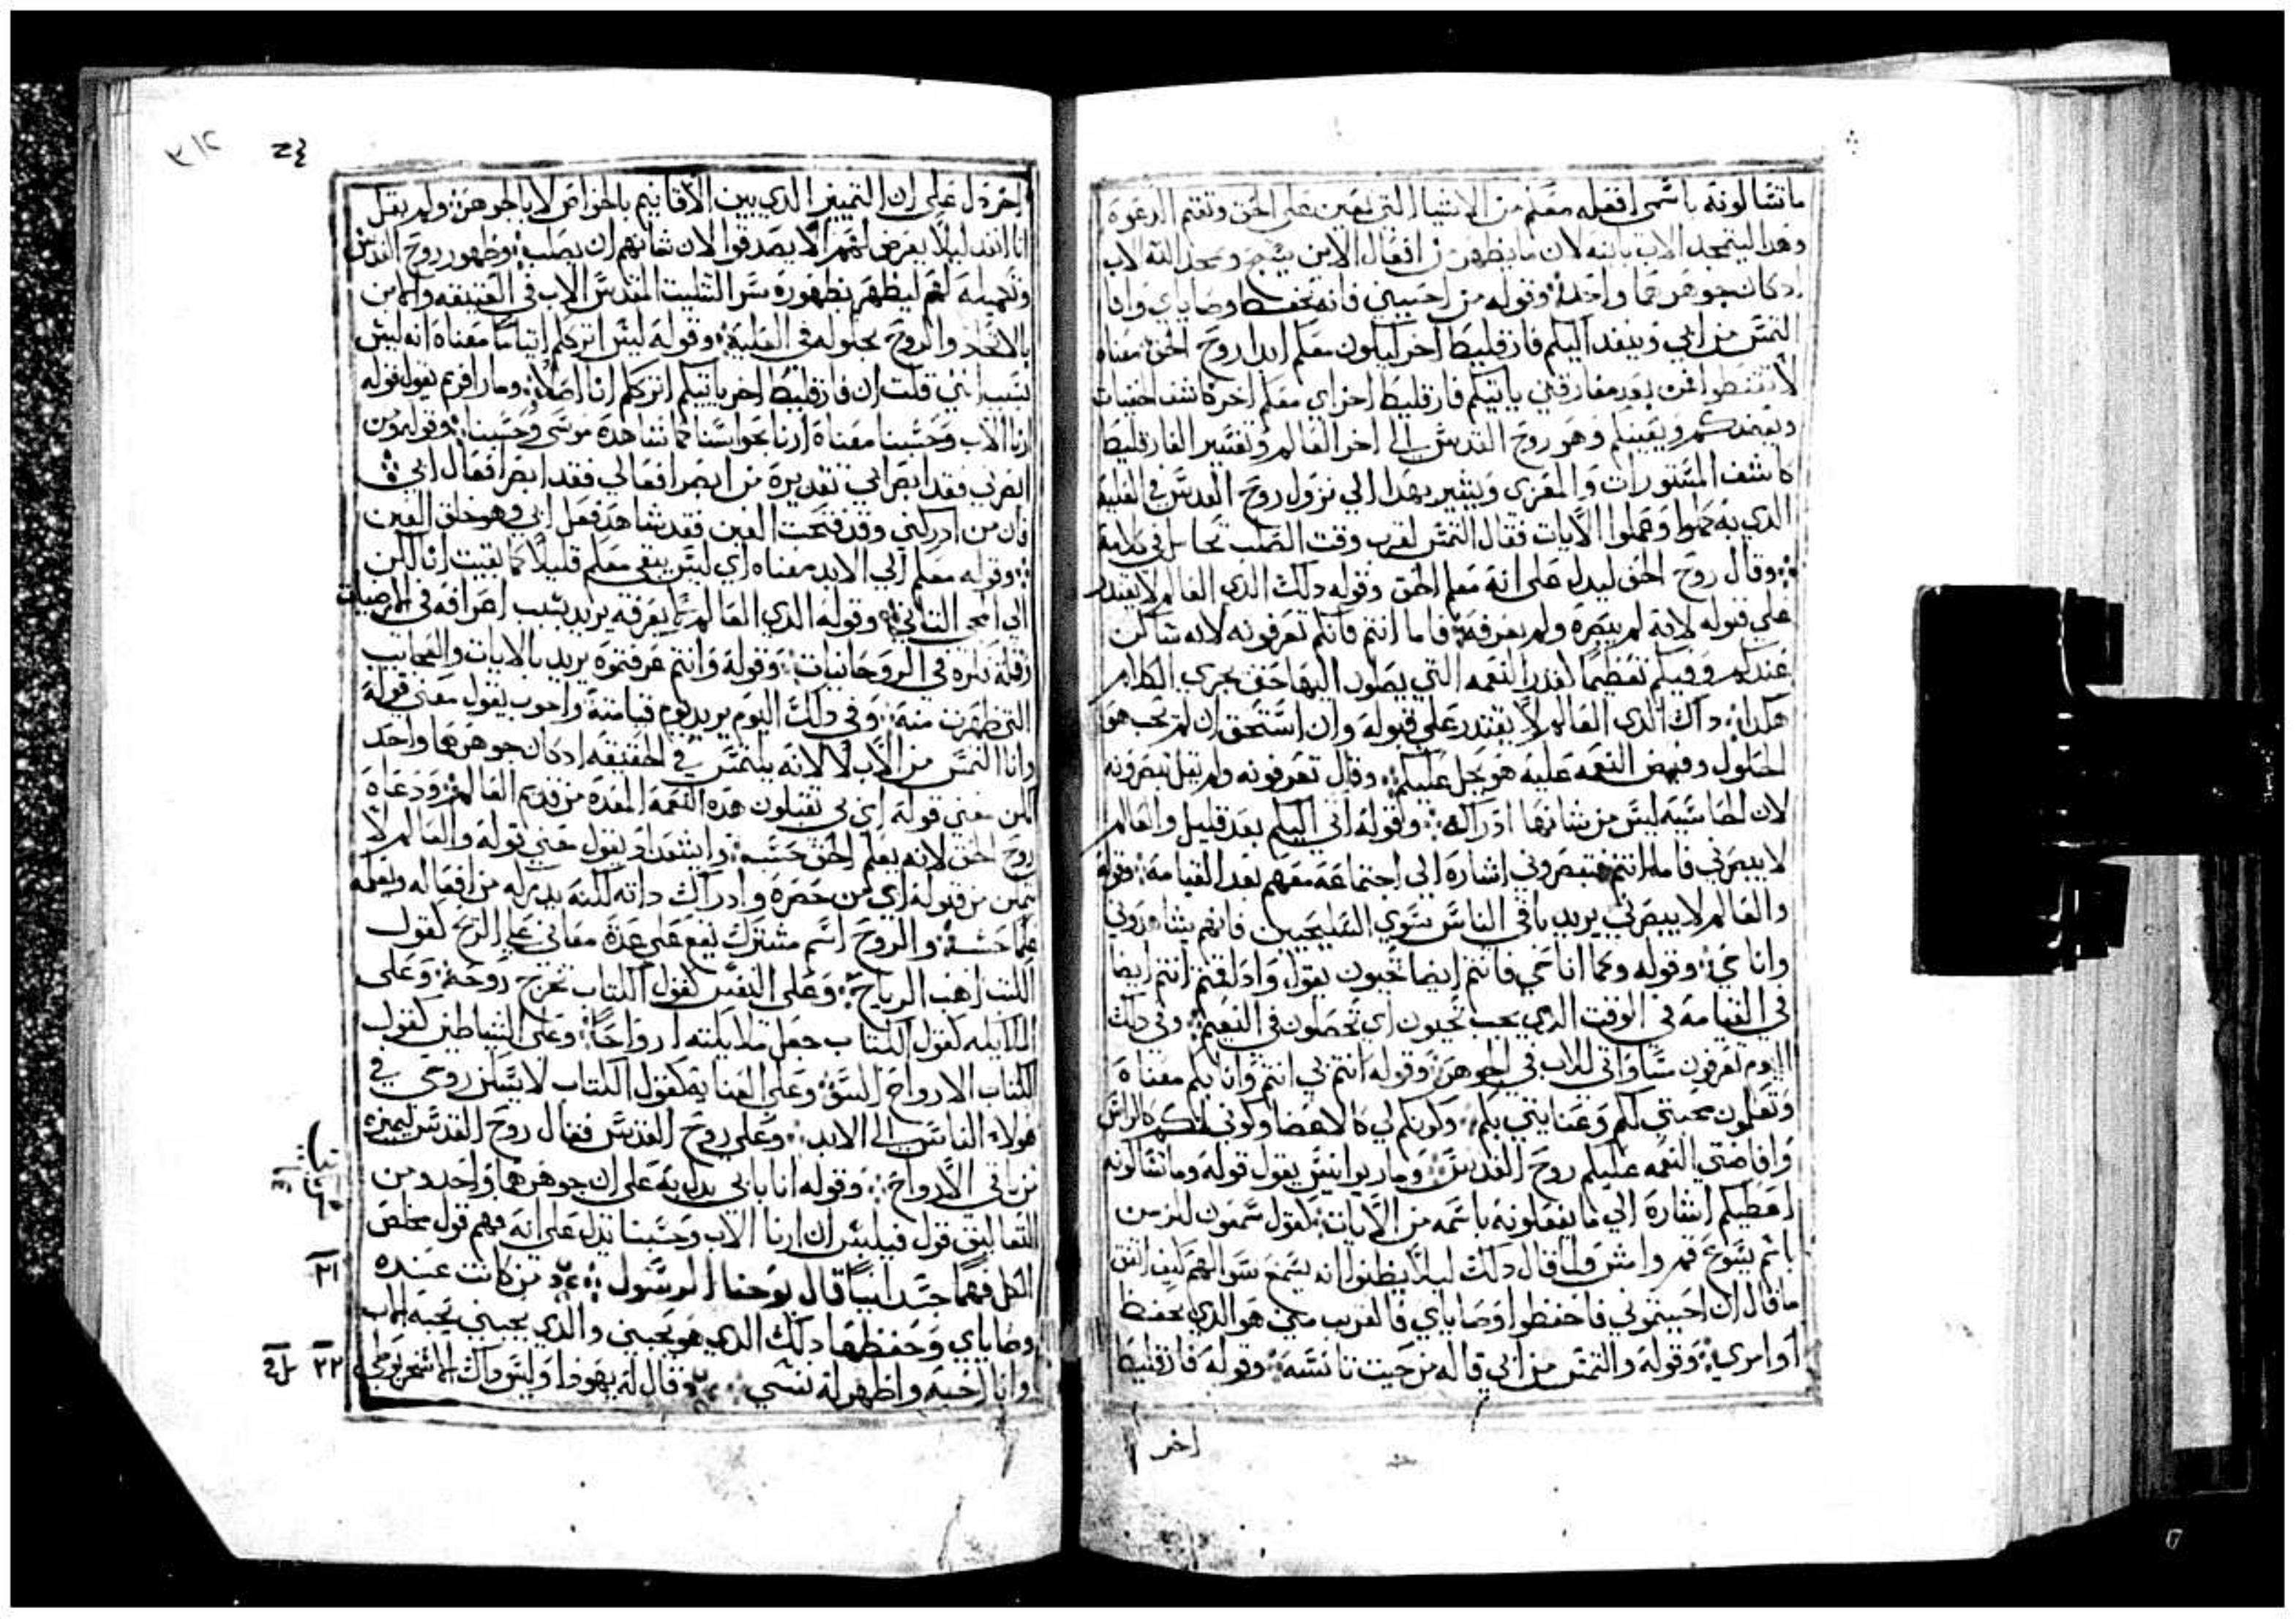 ما تسالونه باسمي افعله معكم من الاشيا التي تعين على الحق وتقيم الدعوة
وهدا ليتمجد الاب بابنه لان ما يظهر من افعال الابن يمجد الله الاب
ادكان جوهرهما واحد وقوله من احبني فانه يحفظ اوصاياي وانا
التمس من ابي وينفد اليكم فارقليط اخر ليكون معكم ابدا روح الحق معناه
لا تقنطوا فمن بعد مفارقتي ياتيكم فارقليط اخر اي معلم اخر كاشف الخفيات
ويعضدكم ويعينكم وهو روح القدس الى اخر العالم وتفسير الفارقليط
كاشف المستورات والمعزي ويشير بهدا الي نزول روح القدس في العليه
الدي به وعملوا الايات فقال التمس لقرب وقت الصلب
وقال روح الحق ليدل على انه معلم الحق وقوله دلك الدي العالم لا يقتدر
علي قبوله لانه لم يبصره ولم يعرفه فاما انتم فانكم تعرفونه لانه ساكن
عندكم وفيكم تعظيما لقدر النعمه التي يصلون اليها حتى يجري الكلام
هكدا داك الدي العالم لا يقتدر على قبوله وان استحق ان لم يحب هو
الحلول وفيض النعمه عليه هو يحل عليكم وقال تعرفونه ولم يقل تبصرونه
لان الحاسيه ليس من شانها ادراكه وقوله اتي اليكم بعد قليل والعالم
لا يبصرني فاما انتم فتبصروني اشاره الى اجتماعه معهم بعد القيامه وقوله
والعالم لا يبصرني يريد باقي الناس سوي المسيحيين فانهم يشاهدوني
وانا حي وقوله وكما انا حي فانتم ايضا تحيون يقول وادا قمتم انتم ايضا
في القيامه في الوقت الدي يجب تحيون اي تحصلون في النعيم وفي دلك
اليوم تعرفون مساواتي للاب في الجوهر وقوله انتم بي انتم وانا بكم معناه
وتعلمون محبتي لكم وعنايتي بكم وكونكم لي كالاعضا وكوني لكم كالراس
وافاضتي النعمه عليكم روح القدس وماريوانيس يقول قوله وما تسالونه
اعطيكم اشاره الي ما يفعلونه باسمه من الايات كقول سمعون للزمن
باسم يسوع قم وامش ولما قال دلك ليلا يظنوا انه يسمع سوالهم كيف اتفق
ما قال ان احببتموني فاحفظوا وصاياي فالقريب مني هو الدي يحفظ
اوامري وقوله والتمس من ابي قاله من حيث تانسه وقوله فارقليط
اخر
٣١٢
اخر دل على ان التمييز الدي بين الاقانيم بالخواص لا بالجوهر ولم يقل
انا انفد ليلا يعرض لهم الا يصدقوا لان شانهم ان يصلب وظهور روح القدس
وتكميله لهم ليظهر بظهوره سر التثليث المقدس الاب في الحقيقه والابن
بالاتحاد والروح بحلوله في العليه وقوله ليس اترككم ايتاما معناه انه ليس
بسبب انني قلت ان فارقليط اخر ياتيكم اترككم انا اصلا ومار افريم يقول قوله
ارنا الاب وحسبنا معناه ارنا بحواسنا كما شاهده موسى وحسبنا وقوله من
ابصرني فقد ابصر ابي تقديره من ابصر افعالي فقد ابصر افعال ابي
فان من ادركني وقد فتحت العين فقد شاهد فعل ابي وهو خلق العين
وقوله معكم الي الابد معناه اي ليس يبقى معكم قليلا كما بقيت انا لكن
الي المجي التاني وقوله الدي العالم ما يعرفه يريد بسبب انصرافه في الارضيات
وقلة نظره في الروحانيات وقوله وانتم عرفتموه يريد بالايات والعجايب
التي ظهرت منه وفي دلك اليوم يريد يوم قيامته واخرون يقول معنى قوله
وانا التمس من الاب لا لانه يلتمس في الحقيقه ادكان جوهرهما واحد
لكن معنى قوله اي بي تقبلون هده النعمه المعده من قديم العالم ودعاه
روح الحق لانه يعلم الحق حسب وايشعداد يقول معني قوله والعالم لا
يتمكن من قبوله اي من حصره وادراك داته لكنه يدركه من افعاله ونعمه
علما حسب والروح اسم مشترك يقع على عدة معاني على الريح كقول
الكتب اهب الرياح وعلى النفس كقول الكتاب تخرج روحه وعلى
الملايكه كقول الكتاب جعل ملايكته ارواحا وعلى الشياطين كقول
الكتاب الارواح السو وعلى العنايه كقول الكتاب لا يسكن روحي في
هولاء الناس الى الابد وعلى روح القدس فقال روح القدس ليميزه
من باقي الارواح وقوله انا بابي يدل به على ان جوهرهما واحد ومن
التعاليق قول فيلبس ان ارنا الاب وحسبنا تدل على انه فهم قول مخلص
الكل فهما جسدانيا قال يوحنا الرسول من كانت عنده
٢١
وصاياي وحفظها دلك الدي هو يحبني والدي يحبني يحبه الاب
وانا احبه واظهر له نفسي وقال له يهودا وليس داك الاسخريوطي
٢٢